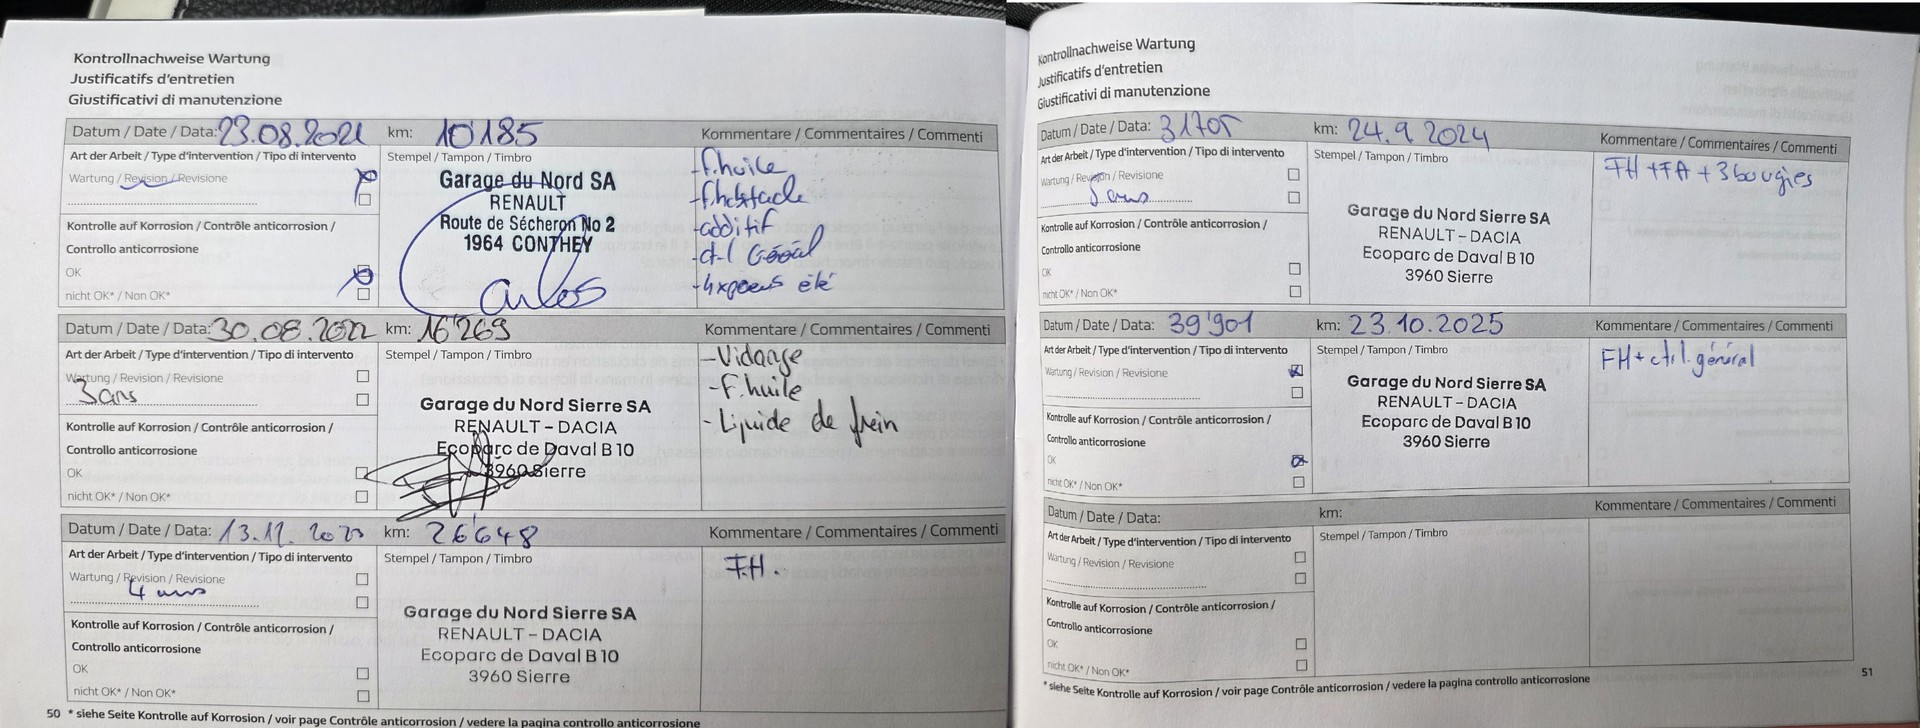 Kontrollnachweise Wartung
Justificatifs d'entretien
Giustificativi di manutenzione
Datum / Date / Data: 23.08.2021 km: 10'185 Kommentare / Commentaires / Commenti
Art der Arbeit / Type d'intervention / Tipo di intervento
Wartung / Revision / Revisione
Stempel / Tampon / Timbro
Garage du Nord SA
RENAULT
Route de Sécheron No 2
1964 CONTHEY
Carlos
- f.huile
- f.habitacle
- additif
- ct-l
- 4xpneus été
Kontrolle auf Korrosion / Contrôle anticorrosion /
Controllo anticorrosione
OK
nicht OK* / Non OK*
Datum / Date / Data: 30.08.2022 km: 16'269 Kommentare / Commentaires / Commenti
Art der Arbeit / Type d'intervention / Tipo di intervento
Wartung / Revision / Revisione
3 ans
Stempel / Tampon / Timbro
Garage du Nord Sierre SA
RENAULT – DACIA
Ecoparc de Daval B 10
3960 Sierre
- Vidange
- F.huile
- Liquide de frein
Kontrolle auf Korrosion / Contrôle anticorrosion /
Controllo anticorrosione
OK
nicht OK* / Non OK*
Datum / Date / Data: 13.12.2023 km: 26'648 Kommentare / Commentaires / Commenti
Art der Arbeit / Type d'intervention / Tipo di intervento
Wartung / Revision / Revisione
4 ans
Stempel / Tampon / Timbro
Garage du Nord Sierre SA
RENAULT – DACIA
Ecoparc de Daval B 10
3960 Sierre
F.H.
Kontrolle auf Korrosion / Contrôle anticorrosion /
Controllo anticorrosione
OK
nicht OK* / Non OK*
50 * siehe Seite Kontrolle auf Korrosion / voir page Contrôle anticorrosion / vedere la pagina controllo anticorrosione
Kontrollnachweise Wartung
Justificatifs d'entretien
Giustificativi di manutenzione
Datum / Date / Data: 31705 km: 24.9.2024 Kommentare / Commentaires / Commenti
Art der Arbeit / Type d'intervention / Tipo di intervento
Wartung / Revision / Revisione
5 ans
Stempel / Tampon / Timbro
Garage du Nord Sierre SA
RENAULT – DACIA
Ecoparc de Daval B 10
3960 Sierre
FH + FA + 3 bougies
Kontrolle auf Korrosion / Contrôle anticorrosion /
Controllo anticorrosione
OK
nicht OK* / Non OK*
Datum / Date / Data: 39'901 km: 23.10.2025 Kommentare / Commentaires / Commenti
Art der Arbeit / Type d'intervention / Tipo di intervento
Wartung / Revision / Revisione
Stempel / Tampon / Timbro
Garage du Nord Sierre SA
RENAULT – DACIA
Ecoparc de Daval B 10
3960 Sierre
FH + ctrl. général
Kontrolle auf Korrosion / Contrôle anticorrosion /
Controllo anticorrosione
OK
nicht OK* / Non OK*
Datum / Date / Data: km: Kommentare / Commentaires / Commenti
Art der Arbeit / Type d'intervention / Tipo di intervento
Wartung / Revision / Revisione
Stempel / Tampon / Timbro
Kontrolle auf Korrosion / Contrôle anticorrosion /
Controllo anticorrosione
OK
nicht OK* / Non OK*
* siehe Seite Kontrolle auf Korrosion / voir page Contrôle anticorrosion / vedere la pagina controllo anticorrosione 51